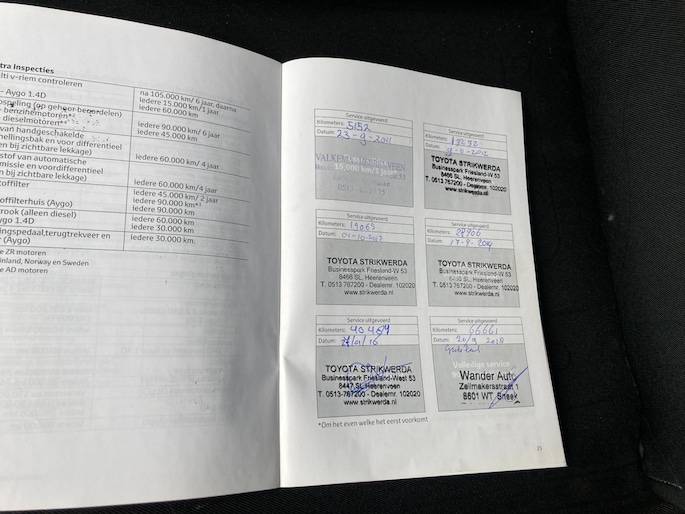 tra Inspecties
lti v-riem controleren
- Aygo 1.4D
na 105.000 km/ 6 jaar, daarna
iedere 15.000 km/1 jaar
speling (op gehoor beoordelen)
iedere 60.000 km
benzinemotoren*²
dieselmotoren
iedere 90.000 km/ 6 jaar
iedere 45.000 km
van handgeschakelde
nellingsbak en voor differentieel
en bij zichtbare lekkage)
stof van automatische
missie en voordifferentieel
n bij zichtbare lekkage)
iedere 60.000 km/ 4 jaar
offilter
iedere 60.000 km/4 jaar
iedere 45.000 km/ 2 jaar
iedere 90.000 km*³
offilterhuis (Aygo)
iedere 90.000 km
rook (alleen diesel)
iedere 60.000 km
ygo 1.4D
iedere 30.000 km
ingspedaal,terugtrekveer en
r (Aygo)
iedere 30.000 km.
e ZR motoren
inland, Norway en Sweden
e AD motoren
Service uitgevoerd
Kilometers: 5152
Datum: 23-9-2011
15.000 km/1 jaar
Service uitgevoerd
Kilometers:
Datum:
TOYOTA STRIKWERDA
Businesspark Friesland-W 53
8466 SL, Heerenveen
T. 0513 767200 - Dealernr. 102020
www.strikwerda.nl
Service uitgevoerd
Kilometers: 19065
Datum: 01-10-2013
TOYOTA STRIKWERDA
Businesspark Friesland-W 53
8466 SL, Heerenveen
T. 0513 767200 - Dealernr. 102020
www.strikwerda.nl
Service uitgevoerd
Kilometers: 28966
Datum: 17-9-2014
TOYOTA STRIKWERDA
Businesspark Friesland-W 53
8466 SL, Heerenveen
T. 0513 767200 - Dealernr. 102020
www.strikwerda.nl
Service uitgevoerd
Kilometers:
Datum:
TOYOTA STRIKWERDA
Businesspark Friesland-West 53
8447 SL Heerenveen
T. 0513-767200 - Dealernr. 102020
www.strikwerda.nl
Service uitgevoerd
Kilometers: 66661
Datum: 20/9 2018
Volledige service
Wander Auto
Zeilmakersstraat 1
8601 WT. Sneek
*Om het even welke het eerst voorkomt
25